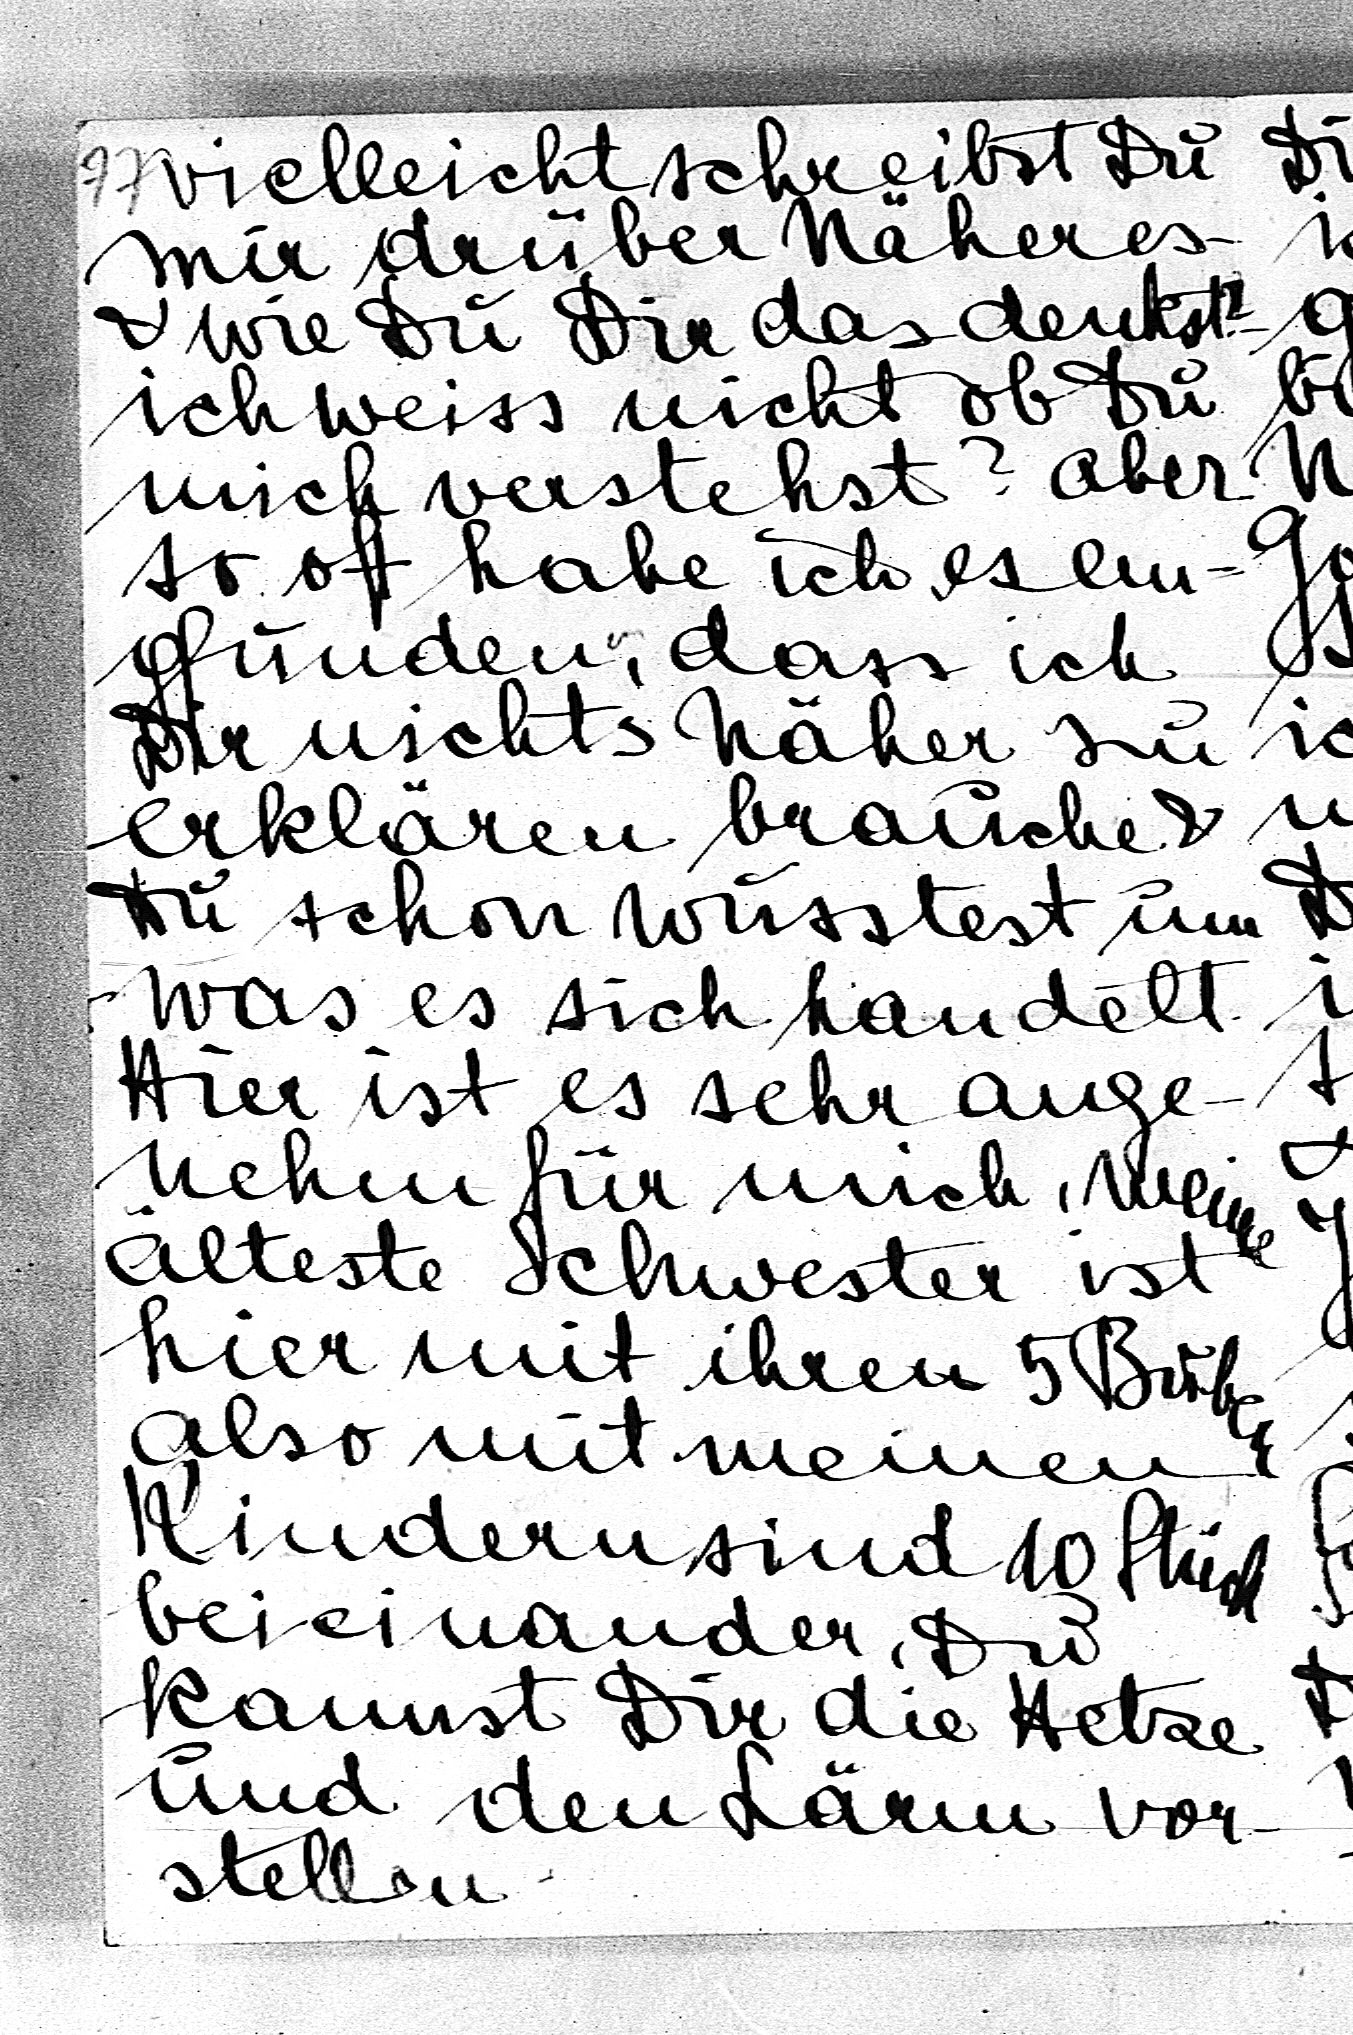 77 vielleicht schreibst Du
mir drüber Näheres
& wie Du Dir das denkst?
ich weiss nicht ob Du
mich verstehst? aber
so oft habe ich es em-
pfunden, dass ich
Dir nichts Näher zu
erklären brauche &
Du schon wusstest um
was es sich handelt
Hier ist es sehr ange-
nehm für mich, meine
älteste Schwester ist
hier mit ihren 5 Buben
also mit meinen
Kindern sind 10 Stück
beieinander, Du
kannst Dir die Hetze
und den Lärm vor-
stellen